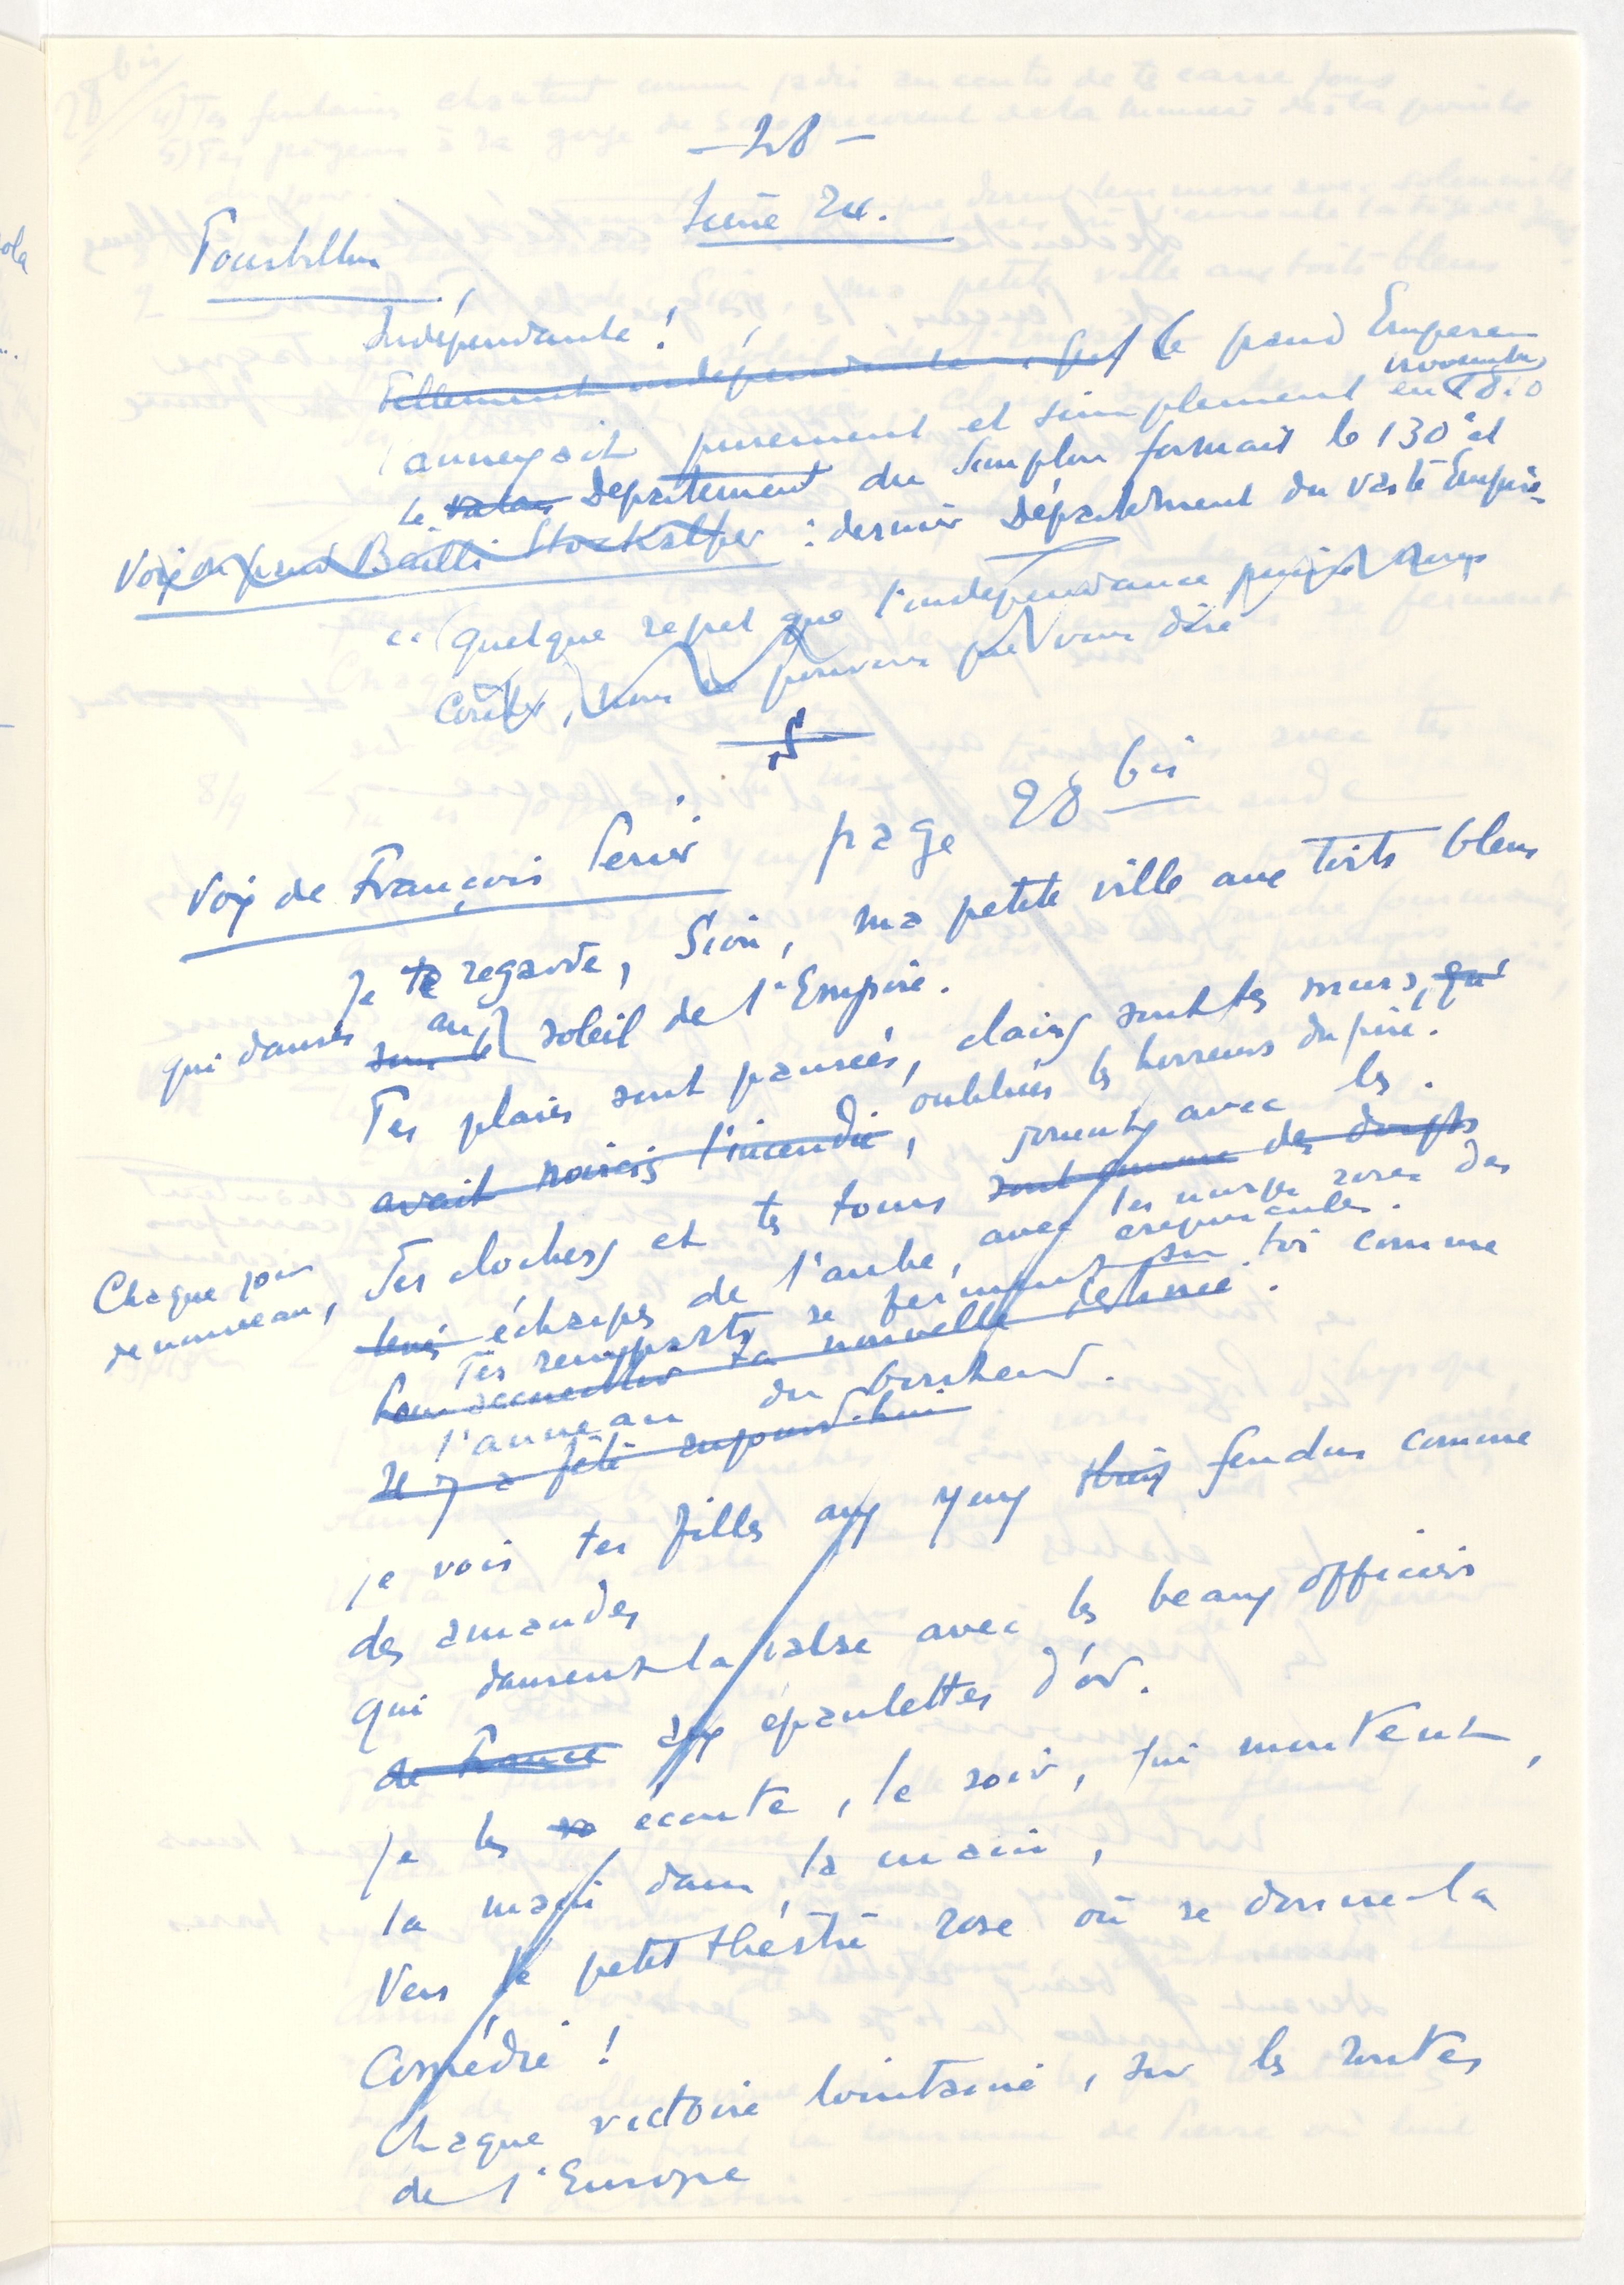 - 28 -
Scène 24.
Tourbillon
Indépendante !
Tellement indépendante que le grand Empereur
l'annexait purement et simplement en novembre 1810
Le Valais Département du Simplon formait le 130e et
: dernier Département du vaste Empire.
Voix du grand Bailli Stockalper
"Quelque regret que l'indépendance puisse nous
coûter, nous ne pouvons que vous dire
Voix de François Perier page 28 bis
Je te regarde, Sion, ma petite ville aux toits bleus
qui danses au soleil de l'Empire.
sous le
Tes plaies sont pansées, clairs sont tes murs, qu'
avait noircis l'incendie, oubliées les horreurs du pire.
Chaque jour de nouveau,
Tes clochers et tes tours jouent avec les
sont comme des doigts
levés échappes de l'aube, avec les nuages roses des
crépuscules.
Tes remparts se ferment sur toi comme
Pour accueillir ta nouvelle destinée.
l'anneau du bonheur.
Il y a fête aujourd'hui
je vois tes filles aux yeux fendus comme
des amandes
qui dansent la valse avec les beaux officiers
de France aux épaulettes d'or.
Je les écoute, le soir, qui montent,
la main dans la main,
Vers le petit théâtre rose où se donne la
Comédie !
Chaque victoire lointaine, sur les routes
de l'Europe